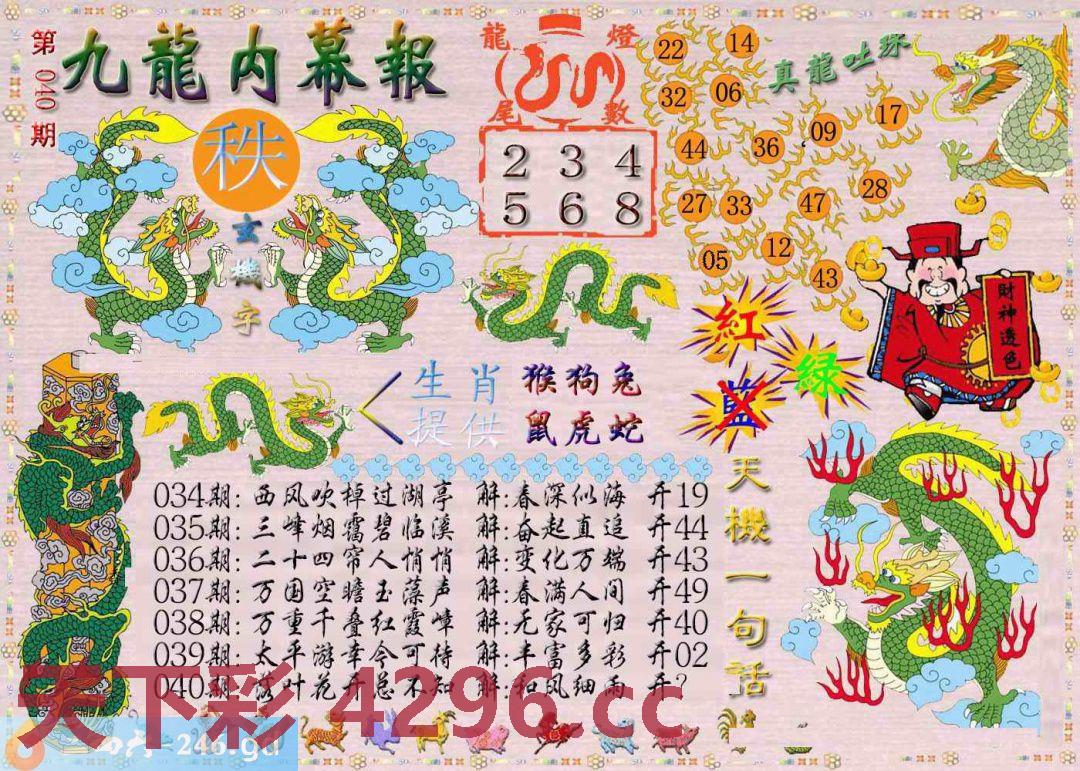 第040期
九龍内幕報
秩
玄機字
龍燈
尾數
2 3 4
5 6 8
真龍吐珠
22 14
32 06
44 36 09 17
27 33 47 28
05 12 43
紅
藍
緑
財神透色
生肖 猴狗兔
提供 鼠虎蛇
034期: 西风吹掉过湖亭 解:春深似海 开19
035期: 三峰烟霭碧临溪 解:奋起直追 开44
036期: 二十四帘人悄悄 解:变化万端 开43
037期: 万国空瞻玉藻声 解:春满人间 开49
038期: 万重千叠红霞嶂 解:无家可归 开40
039期: 太平游幸今可待 解:丰富多彩 开02
040期: 落叶花开总不知 解:和风细雨 开?
天機一句話
天下彩 4296.cc
=246.gd